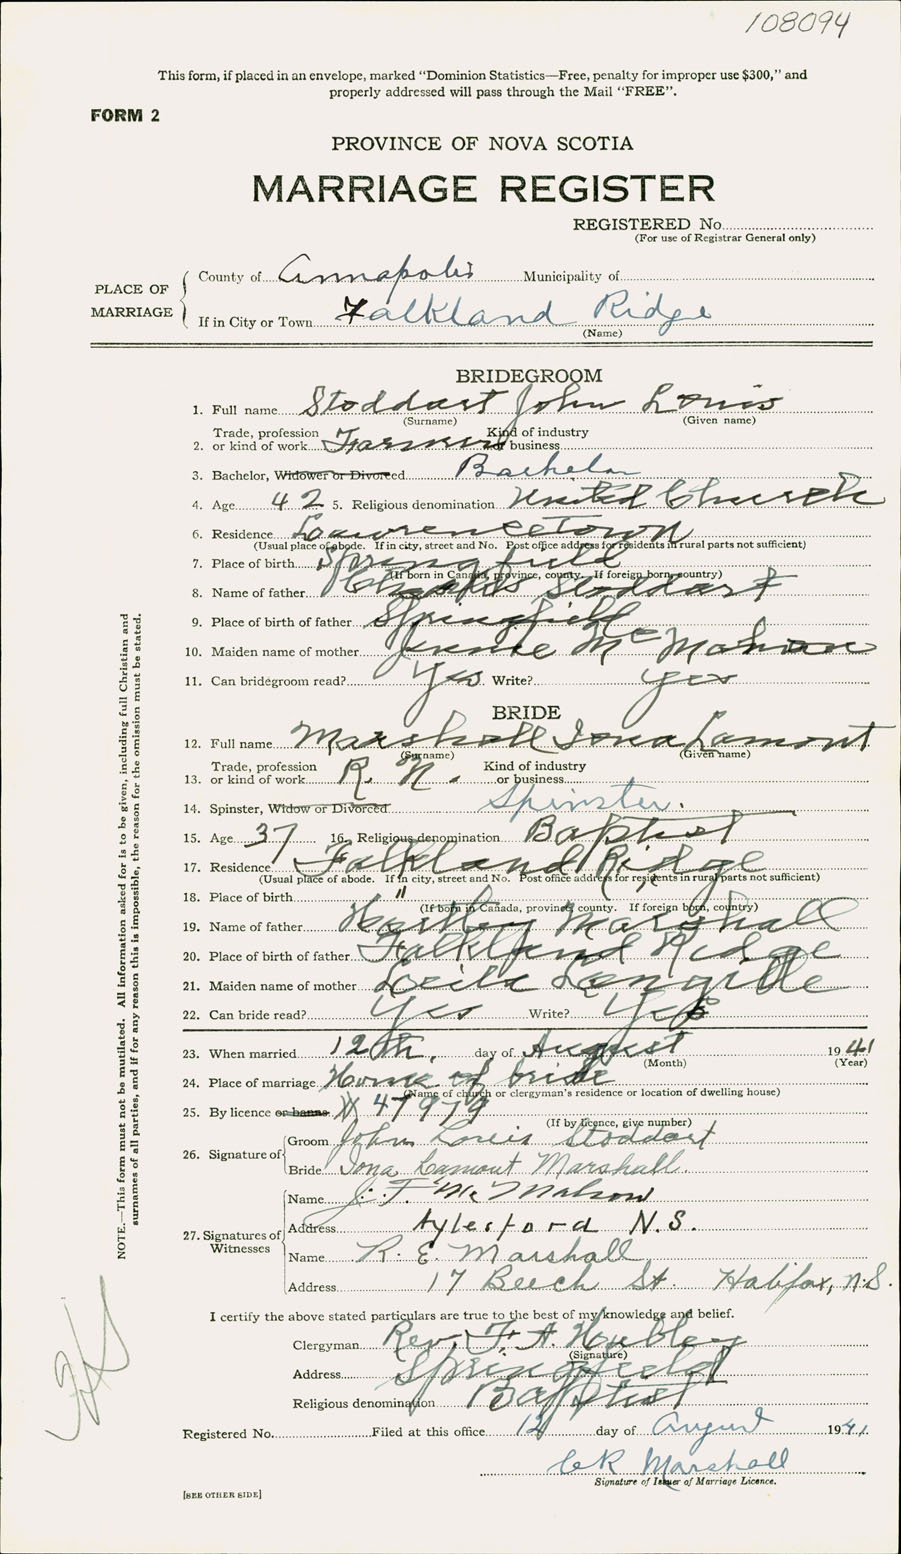 108094
This form, if placed in an envelope, marked "Dominion Statistics—Free, penalty for improper use $300," and
properly addressed will pass through the Mail "FREE".
FORM 2
PROVINCE OF NOVA SCOTIA
MARRIAGE REGISTER
REGISTERED No
(For use of Registrar General only)
PLACE OF MARRIAGE
County of Annapolis Municipality of
If in City or Town Falkland Ridge
(Name)
BRIDEGROOM
1. Full name Stoddart John Louis
(Surname) (Given name)
2. Trade, profession or kind of work Farmer Kind of industry or business
3. Bachelor, Widower or Divorced Bachelor
4. Age 42 5. Religious denomination United Church
6. Residence Lawrencetown
(Usual place of abode. If in city, street and No. Post office address for residents in rural parts not sufficient)
7. Place of birth Springfield
(If born in Canada, province, county. If foreign born, country)
8. Name of father Stoddart
9. Place of birth of father Springfield
10. Maiden name of mother Jennie McMahon
11. Can bridegroom read? Yes Write? yes
BRIDE
12. Full name Marshall Iona Lamont
(Surname) (Given name)
13. Trade, profession or kind of work R. N. Kind of industry or business
14. Spinster, Widow or Divorced Spinster.
15. Age 37 16. Religious denomination Baptist
17. Residence Falkland Ridge
(Usual place of abode. If in city, street and No. Post office address for residents in rural parts not sufficient)
18. Place of birth " "
(If born in Canada, province, county. If foreign born, country)
19. Name of father Hartley Marshall
20. Place of birth of father Falkland Ridge
21. Maiden name of mother Leila Langille
22. Can bride read? Yes Write? Yes
23. When married 12th. day of August 1941
(Month) (Year)
24. Place of marriage Home of bride
(Name of church or clergyman's residence or location of dwelling house)
25. By licence or banns 47979
(If by licence, give number)
26. Signature of Groom John Louis Stoddart
Bride Iona Lamont Marshall.
27. Signatures of Witnesses
Name J. F. McMahon
Address Aylesford N.S.
Name R. E. Marshall
Address 17 Beech St. Halifax, N.S.
I certify the above stated particulars are true to the best of my knowledge and belief.
Clergyman Rev. F. A. Hubley
(Signature)
Address Springfield
Religious denomination Baptist
Registered No. Filed at this office 12 day of August 1941.
CR Marshall
Signature of Issuer of Marriage Licence.
[SEE OTHER SIDE]
NOTE.—This form must not be mutilated. All information asked for is to be given, including full Christian and
surnames of all parties, and if for any reason this is impossible, the reason for the omission must be stated.